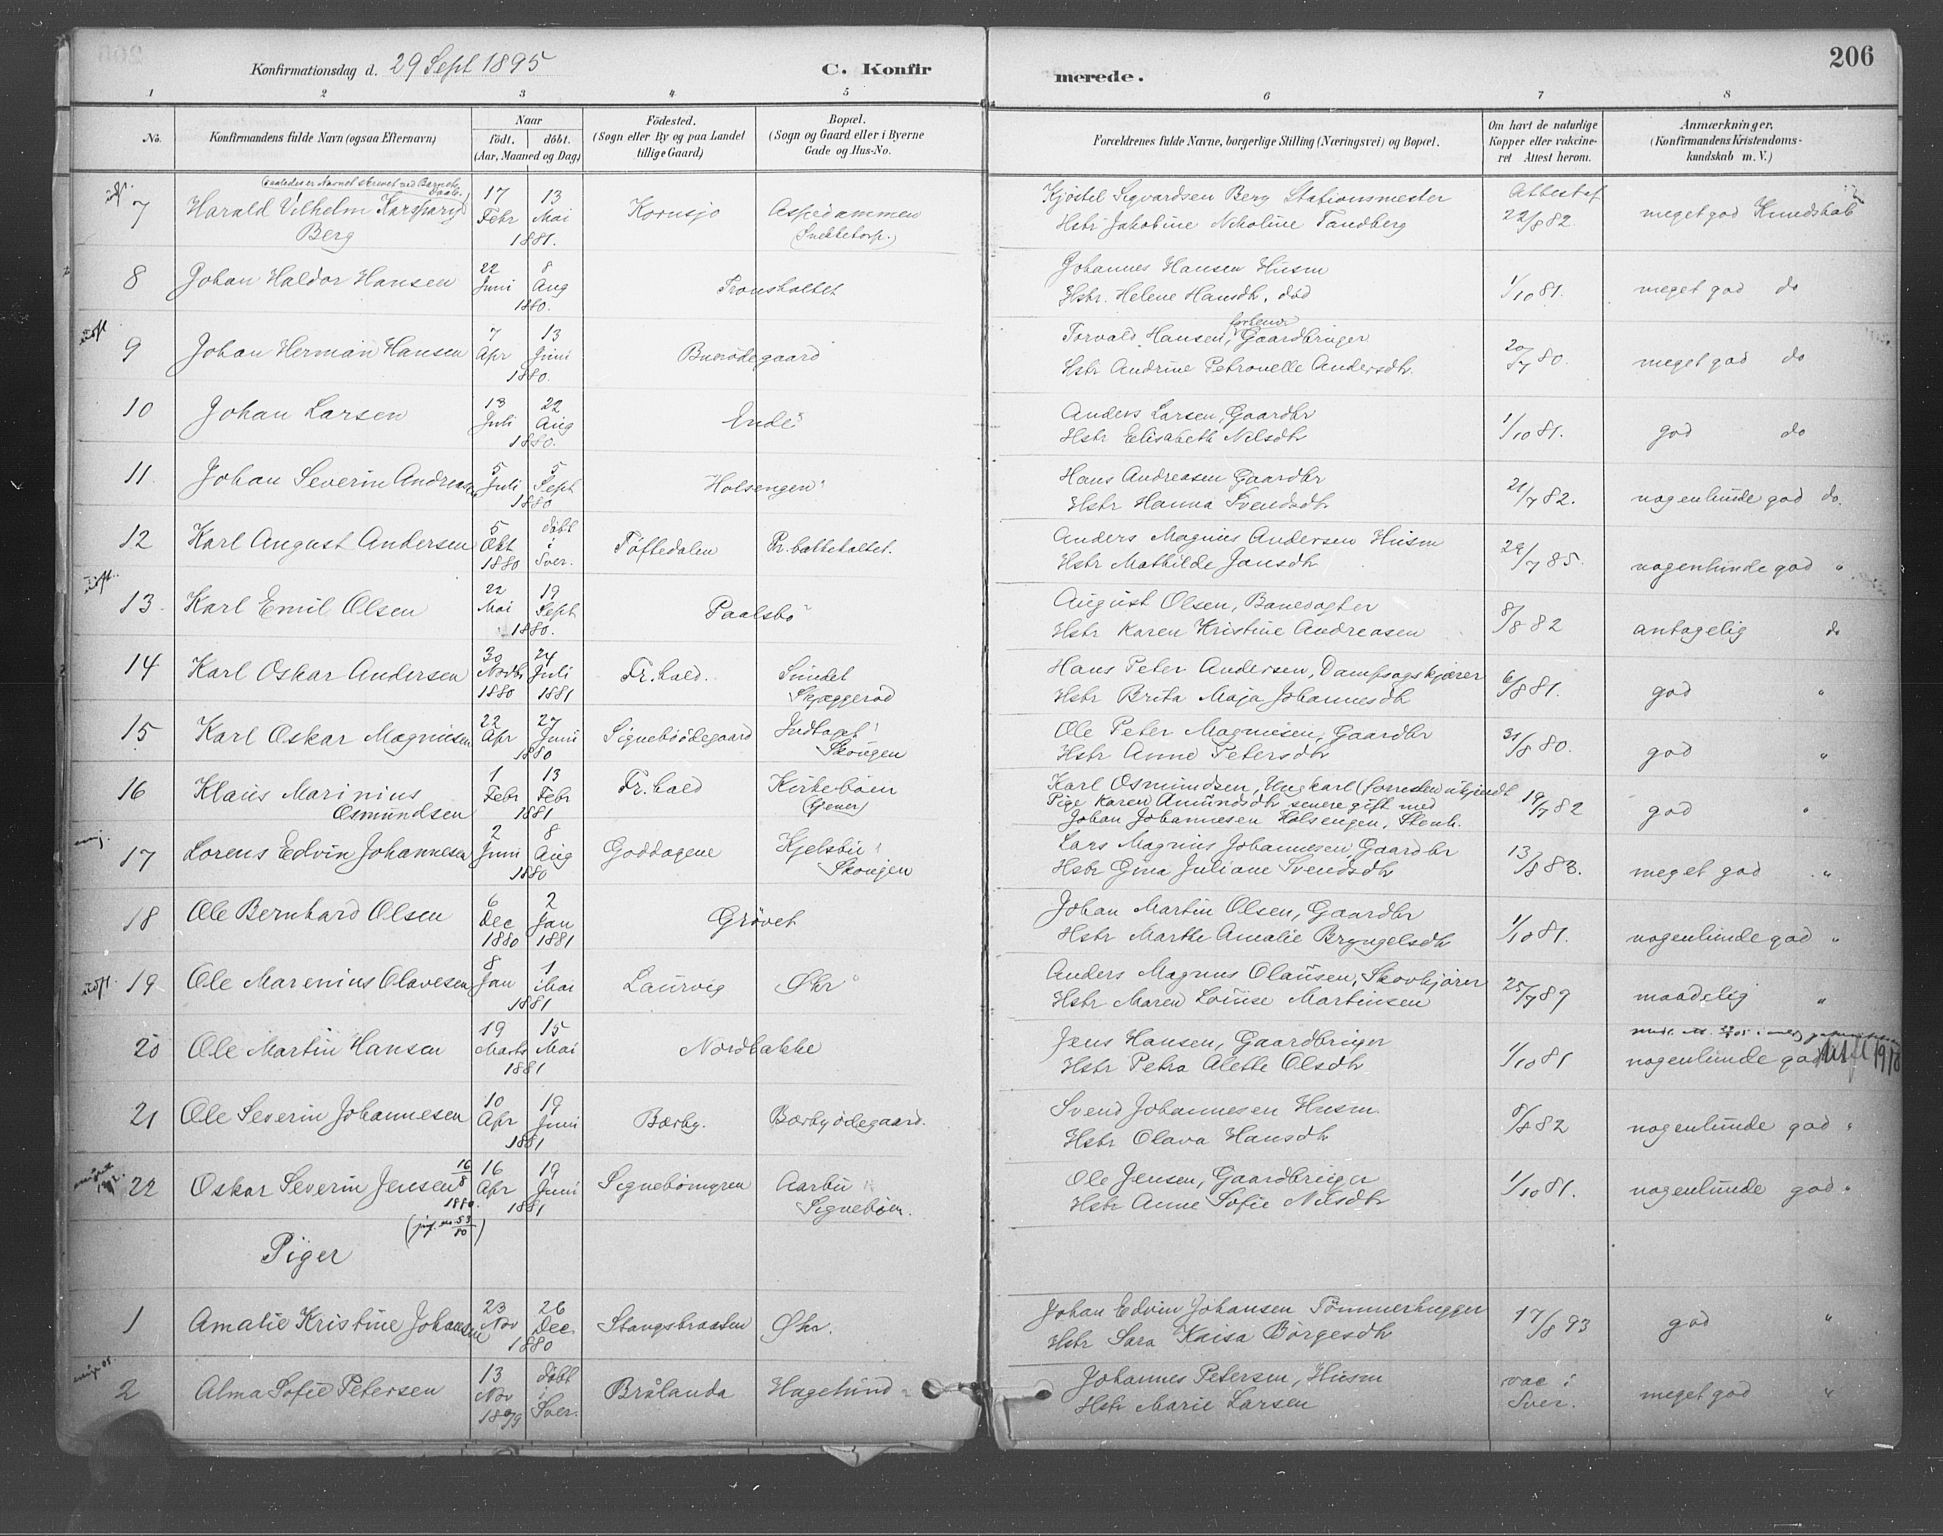 206
Konfirmationsdag d. 29 Sept 1895
C. Konfirmerede.
1 2 3 4 5 6 7 8
No.
Konfirmandens fulde Navn (ogsaa Efternavn)
Naar
født. døbt.
(Aar, Maaned og Dag)
Fødested.
(Sogn eller By og paa Landet
tillige Gaard)
Bopæl.
(Sogn og Gaard eller i Byerne
Gade og Hus-No.
Forældrenes fulde Navne, borgerlige Stilling (Næringsvei) og Bopæl.
Om havt de naturlige
Kopper eller vakcine-
ret Attest herom.
Anmærkninger,
(Konfirmandens Kristendoms-
kundskab m. V.)
7 Harald Vilhelm Berg 17 Febr 13 Mai 1881. Kornsjø Aspedammen
Kjøstel Sigvardsen Berg Stationsmester
Hstr Jakobine Nikoline Tandberg 22/8 82 meget god Kundskab
8 Johan Haldor Hansen 22 Juni 8 Aug 1880. Tronsholtet
Johannes Hansen Husm
Hstr. Helene Hansdtr. død 1/10 81. meget god do
9 Johan Herman Hansen 7 Apr 13 Juni 1880. Buerødegaard
Torvald Hansen, forhenv Gaardbruger
Hstr Andrine Petronelle Andersdtr. 20/7 80. meget god do
10 Johan Larsen 13 Juli 22 Aug 1880. Ende
Anders Larsen, Gaardbr
Hstr Elisabeth Nilsdtr 1/10 81. god do
11 Johan Severin Andreasen 5 Juli 5 Sept 1880 Holsengen
Hans Andreasen Gaardbr
Hstr Hanna Svendsdtr 21/7 82. nogenlunde god do.
12 Karl August Andersen 5 Okt 1880 døbt i Sver. Töftedalen Pr.bakkeholtet.
Anders Magnus Andersen Husm
Hstr Mathilde Jansdtr 29/7 85. nogenlunde god "
13 Karl Emil Olsen 22 Mai 19 Sept 1880. Paalsbo
August Olsen, Banevogter
Hstr Karen Kristine Andreasen 8/8 82 antagelig do
14 Karl Oskar Andersen 30 Novbr 1880 24 Juli 1881 Fr.hald. Sundet
Skjæggerød
Hans Peter Andersen, Dampsagskjører
Hstr Brita Maja Johannesdtr 6/8 81. god "
15 Karl Oskar Magnusen 22 Apr 27 Juni 1880 Signebøødegaard Indtaget
Skougen
Ole Peter Magnusen, Gaardbr
Hstr Anne Petersdtr 31/8 80. god "
16 Klaus Marinius
Osmundsen 1 Febr 13 Febr 1881 Fr.hald Kirkebøen
Karl Osmundsen, Ungkarl (forresten ukjendt
Pige Karen Amundsdtr senere gift med
Johan Johannesen Holsengen, Stenh. 19/7 82 god "
17 Lorens Edvin Johannesen 2 Juni 8 Aug 1880 Goddagene Kjelsbu
Skougen
Lars Magnus Johannesen Gaardbr
Hstr Gina Juliane Svendsdtr 13/8 83. meget god "
18 Ole Bernhard Olsen 6 Dec 1880 2 Jan 1881 Grøvet
Johan Martin Olsen, Gaardbr
Hstr Marthe Amalie Bryngelsdtr 1/10 81. nogenlunde god "
19 Ole Marenius Olavesen 8 Jan 1 Mai 1881 Laurvig Ør
Anders Magnus Olausen, Skovkjører
Hstr Maren Louise Martinsen 25/7 89 maadelig "
20 Ole Martin Hansen 19 Marts 15 Mai 1881 Nordbakke
Jens Hansen, Gaardbruger
Hstr Petra Alette Olsdtr 1/10 81 nogenlunde god
21 Ole Severin Johannesen 10 Apr 19 Juni 1881 Bærby. Bærbyødegaard.
Svend Johannesen Husm.
Hstr Olava Hansdtr 8/8 82 nogenlunde god "
22 Oskar Severin Jensen 16/8 1880. 16 Apr 19 Juni 1881 Signebømyren Aarbu
Signebøen.
Ole Jensen, Gaardbruger
Hstr Anne Sofie Nilsdtr 1/10 81. nogenlunde god "
Piger
1 Amalie Kristine Johansen 23 Nov 26 Dec. 1880 Stangsbraaten Ør.
Johan Edvin Johansen Tømmerhugger
Hstr Sara Kaisa Börgesdtr 17/8 93 god "
2 Alma Sofie Petersen 13 Nov 1879 døbt i Sver. Brålanda Hagelund
Johannes Petersen, Husm
Hstr Marie Larsen vac i Sver. meget god "